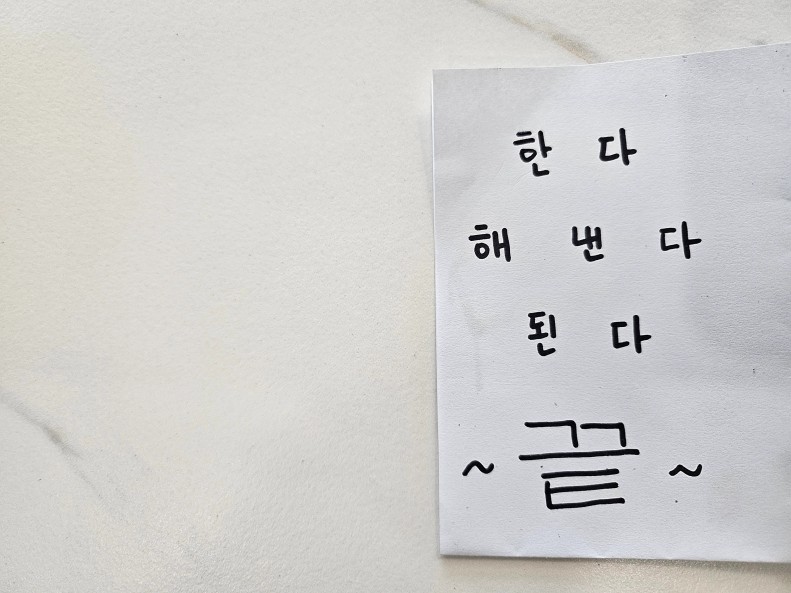 한 다
해 낸 다
된 다
~ 끝 ~